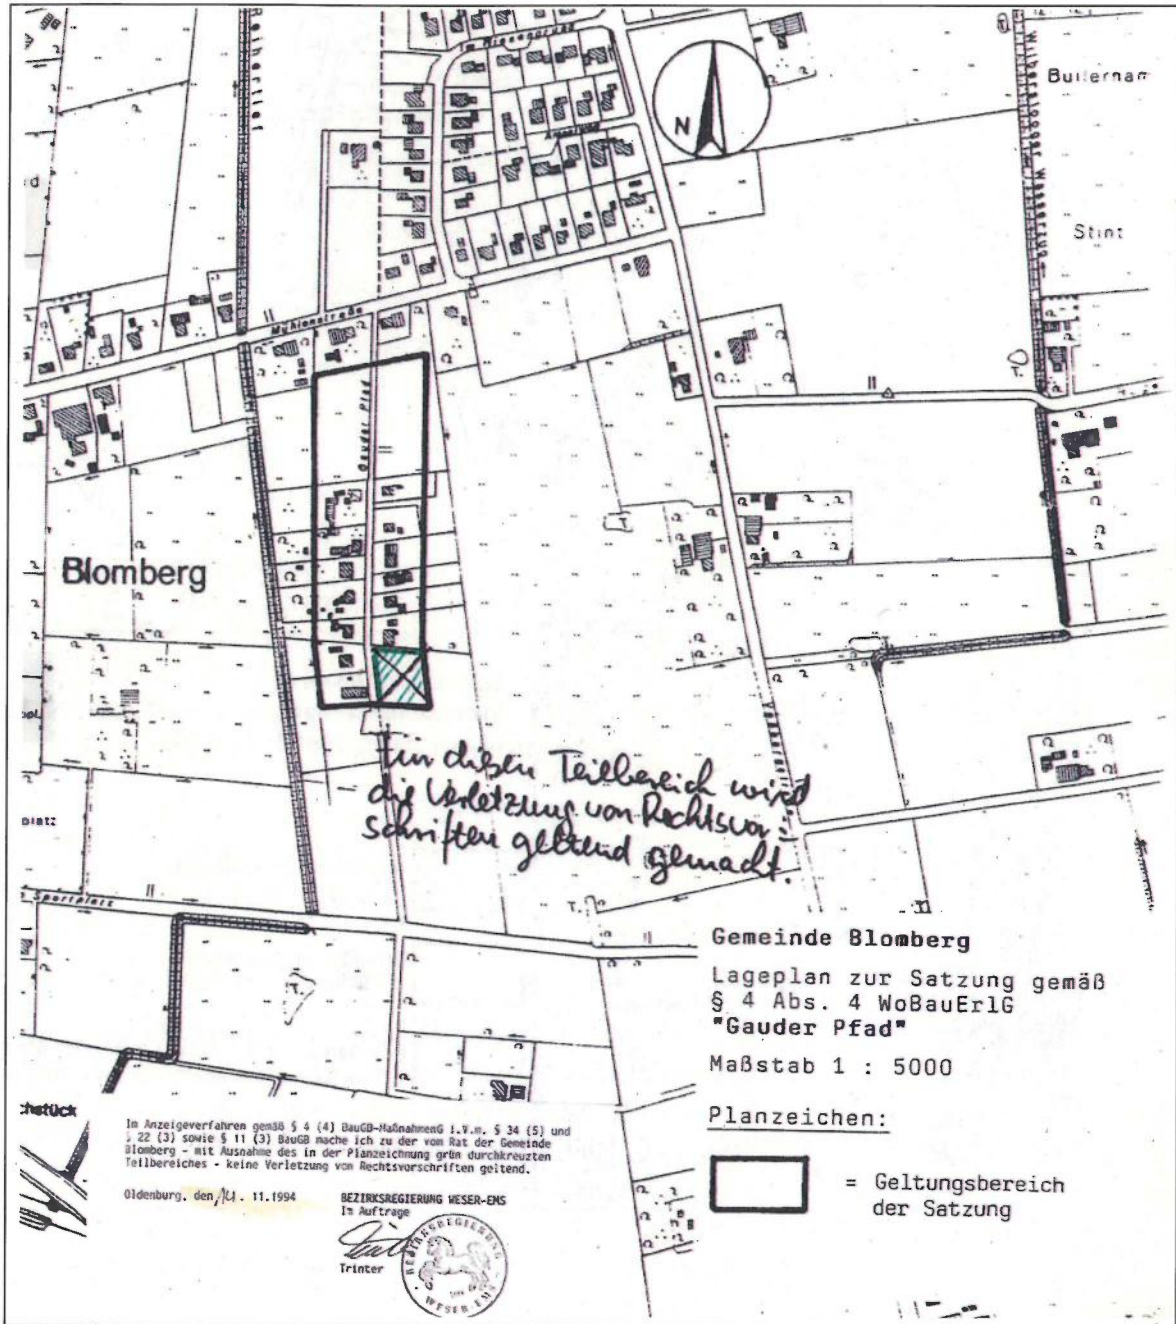 Reihertief
Im Wiesengrund
N
Builernar
Wilbersloher Wasserzug
Stint
Mühlenstraße
Gauder Pfad
Blomberg
Für diesen Teilbereich wird
die Verletzung von Rechtsvor-
schriften geltend gemacht.
platz
Sportplatz
Gemeinde Blomberg
Lageplan zur Satzung gemäß
§ 4 Abs. 4 WoBauErlG
"Gauder Pfad"
Maßstab 1 : 5000
Planzeichen:
= Geltungsbereich
der Satzung
chstück
Im Anzeigeverfahren gemäß § 4 (4) BauGB-MaßnahmenG i.V.m. § 34 (5) und
§ 22 (3) sowie § 11 (3) BauGB mache ich zu der vom Rat der Gemeinde
Blomberg - mit Ausnahme des in der Planzeichnung grün durchkreuzten
Teilbereiches - keine Verletzung von Rechtsvorschriften geltend.
Oldenburg, den 11.1994
BEZIRKSREGIERUNG WESER-EMS
Im Auftrage
Trinter
BEZIRKSREGIERUNG
WESER-EMS